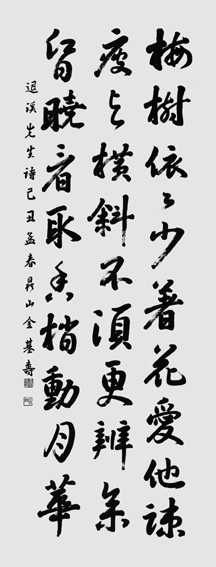 梅樹依〻少著花愛他疎
瘦与橫斜不須更辨參
昏曉看取香梢動月華
退溪先生詩己丑孟春山金基壽